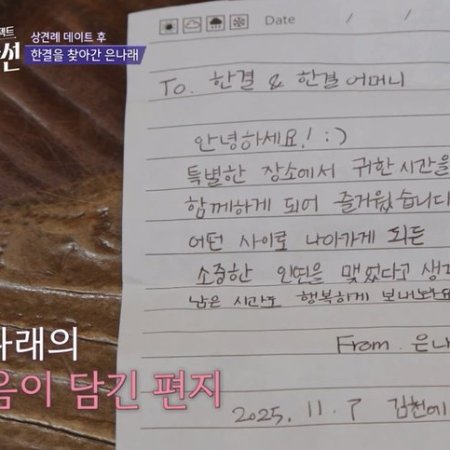 상견례 데이트 후
한결을 찾아간 은나래
Date / /
To. 한결 & 한결어머니
안녕하세요! :)
특별한 장소에서 귀한 시간을
함께하게 되어 즐거웠습니다
어떤 사이로 나아가게 되든
소중한 인연을 맺었다고 생각
남은 시간도 행복하게 보내봐요
From. 은나
나래의
음이 담긴 편지
2025. 11. 7 김천에